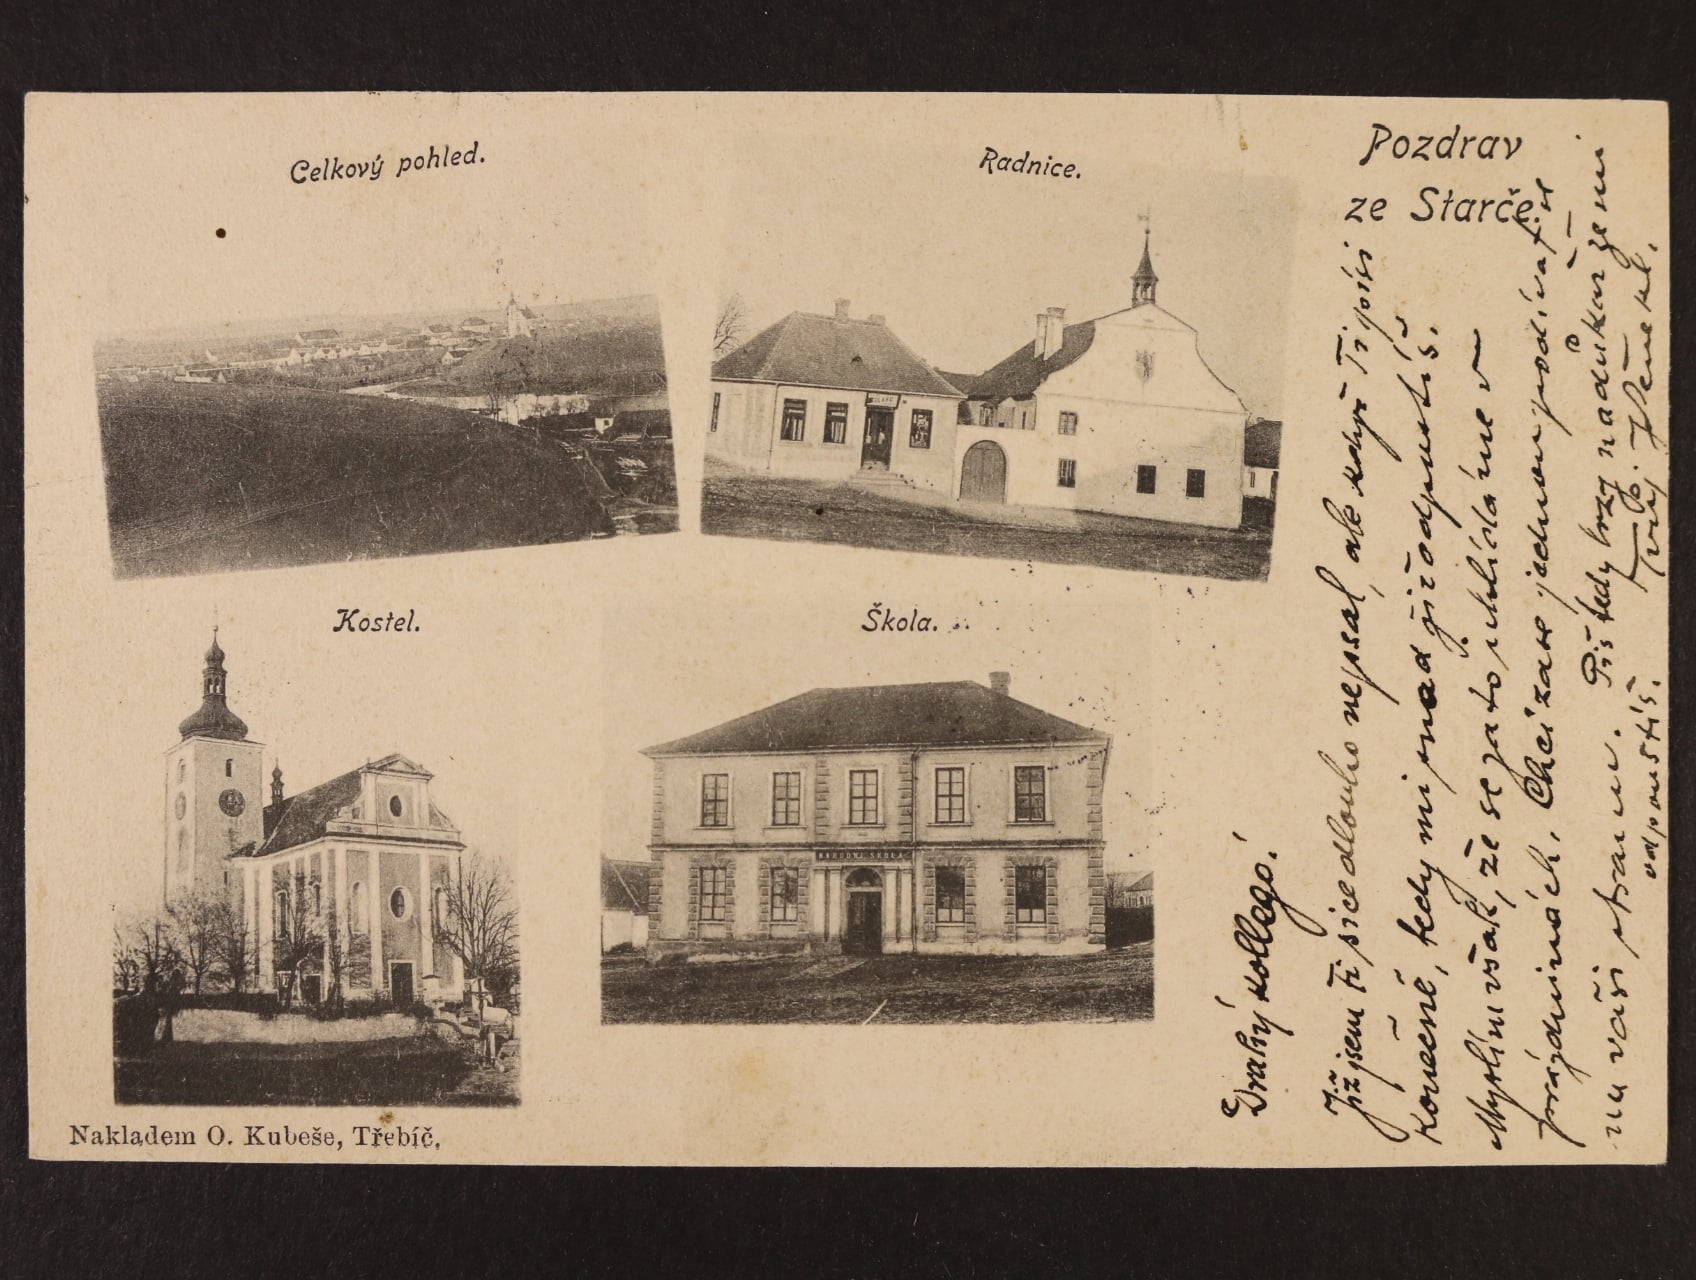 Celkový pohled.
Radnice.
Pozdrav
ze Starče.
Kostel.
Škola.
NÁRODNÍ ŠKOLA
Nakladem O. Kubeše, Třebíč.
Drahý kollego!
Již jsem Ti sice dlouho nepsal, ale když Ti píši
konečně, tedy mi snad již odpustíš.
Myslím však, že se za to uhlídáme v
prázdninách. Chci zase jednou podívat se
na vaši stranu. Piš tedy brzy na důkaz že mi
odpouštíš.
Tvůj